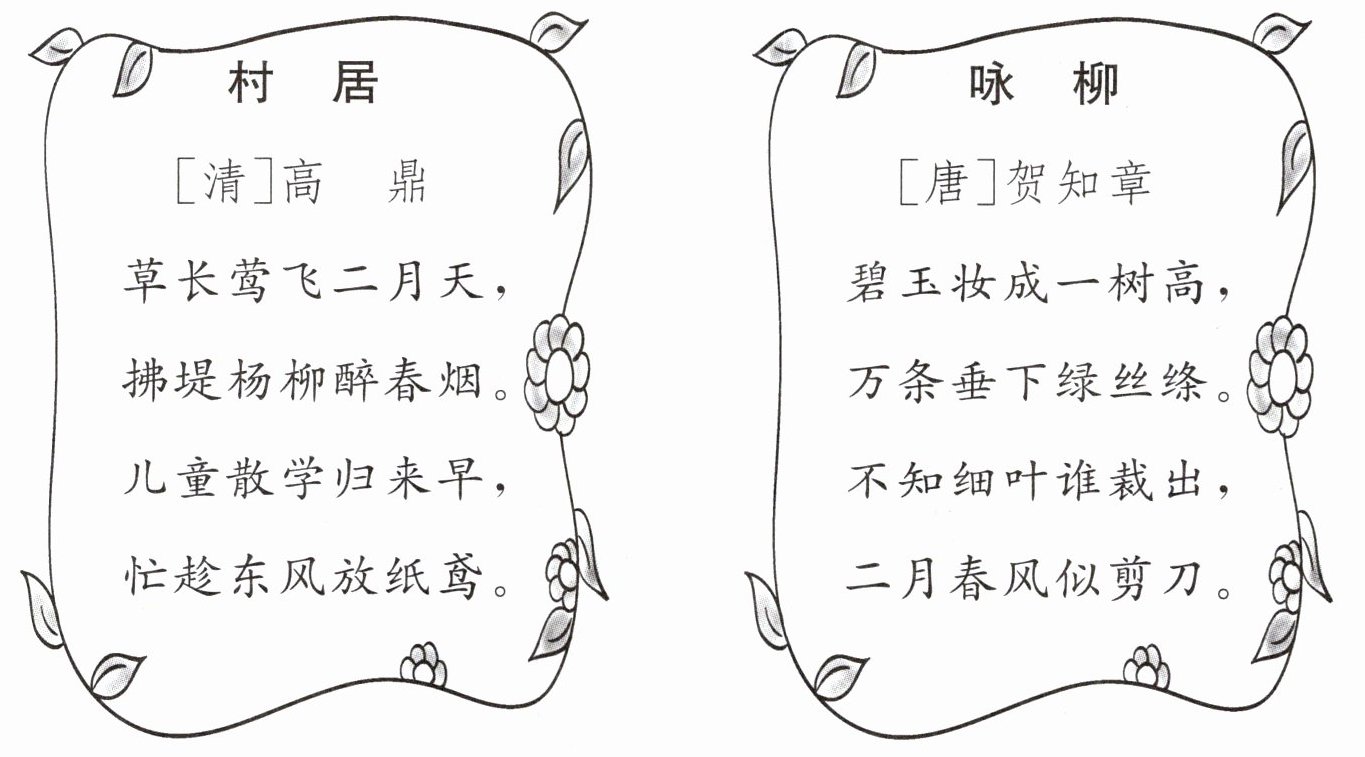 村 居
[清]高 鼎
草长莺飞二月天，
拂堤杨柳醉春烟。
儿童散学归来早，
忙趁东风放纸鸢。
咏 柳
[唐]贺知章
碧玉妆成一树高，
万条垂下绿丝绦。
不知细叶谁裁出，
二月春风似剪刀。